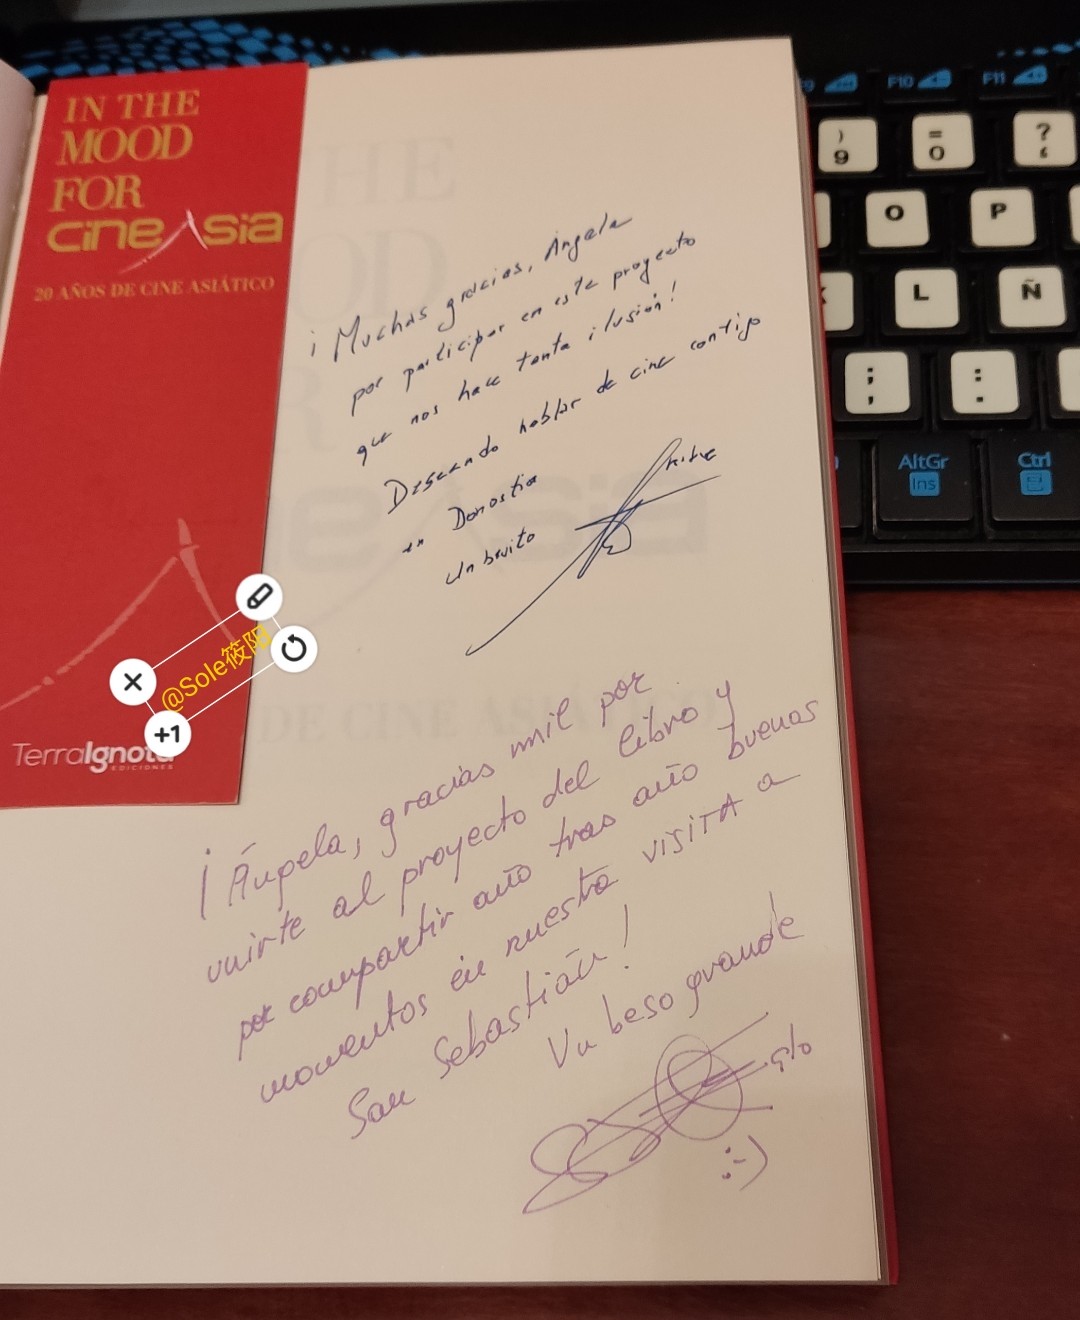 IN THE
MOOD
FOR
cineAsia
20 AÑOS DE CINE ASIÁTICO
TerraIgnota
EDICIONES
@Sole筱阳
+1
¡Muchas gracias, Ángela
por participar en este proyecto
que nos hace tanta ilusión!
Deseando hablar de cine contigo
en Donostia
Un besito
¡Ángela, gracias mil por
unirte al proyecto del libro y
por compartir año tras año buenos
momentos en nuestra VISITA a
San Sebastián!
Un beso grande
:-)
THE
OOD
R
neAsia
DE CINE ASIÁTICO
F10
F11
)
9
=
0
?
O
P
L
Ñ
;
,
:
.
AltGr
Ins
Ctrl